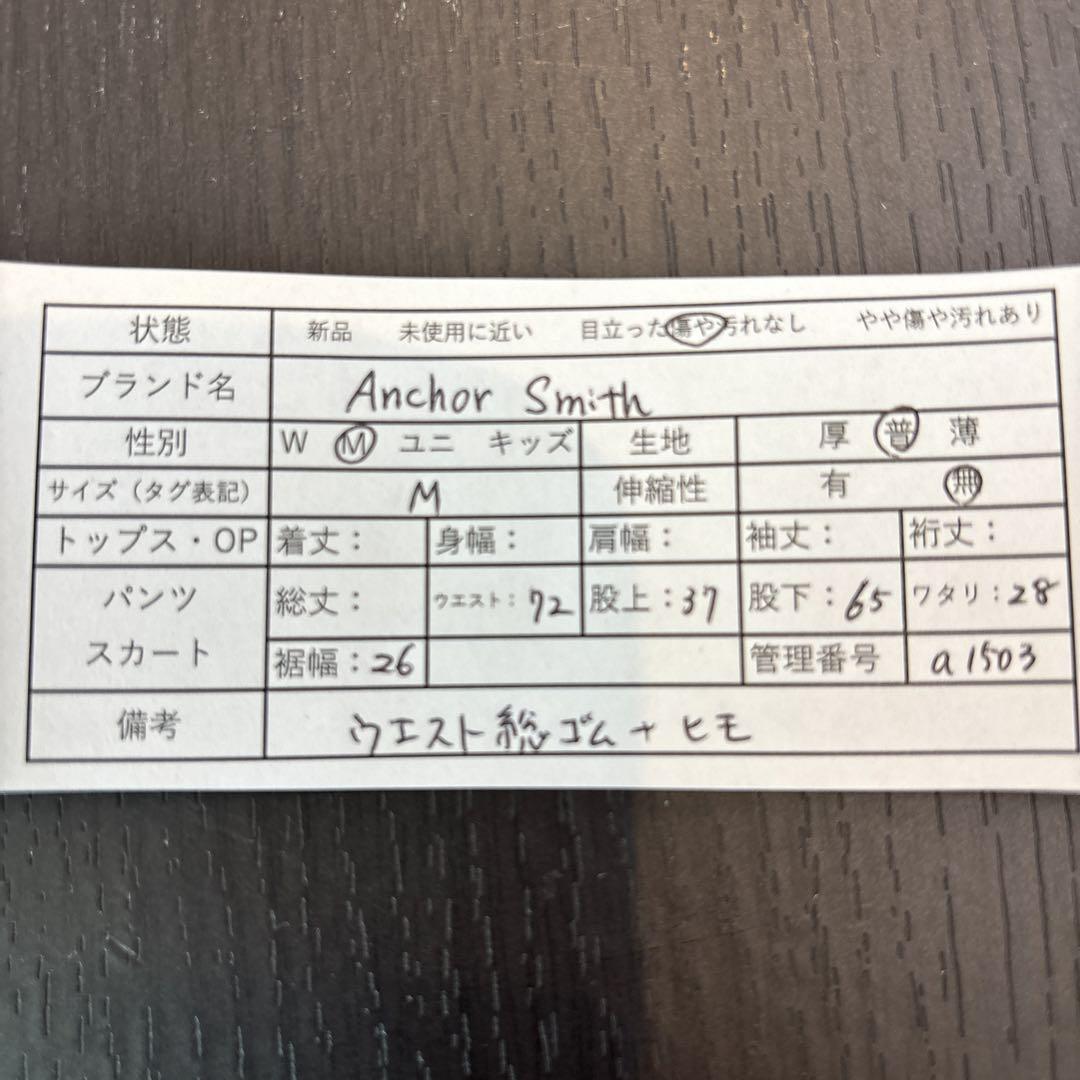 状態 新品 未使用に近い 目立った傷や汚れなし やや傷や汚れあり
ブランド名 Anchor Smith
性別 W M ユニ キッズ 生地 厚 普 薄
サイズ(タグ表記) M 伸縮性 有 無
トップス・OP 着丈: 身幅: 肩幅: 袖丈: 裄丈:
パンツ 総丈: ウエスト:72 股上:37 股下:65 ワタリ:28
スカート 裾幅:26 管理番号 a1503
備考 ウエスト総ゴム+ヒモ